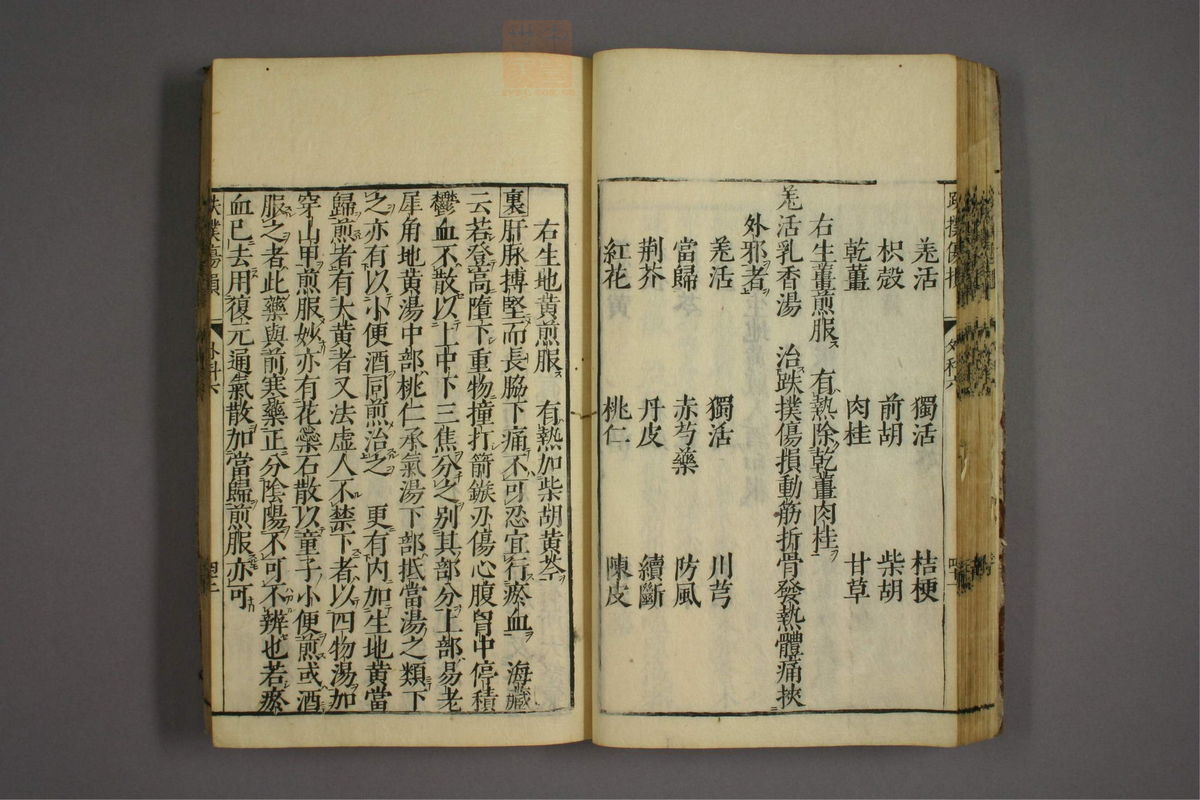 羗活 獨活 桔梗
枳殼 前胡 柴胡
乾薑 肉桂 甘草
右生薑煎服 有熱除乾薑肉桂
羗活乳香湯 治跌撲傷損動筋折骨發熱體痛挾
外邪者
羗活 獨活 川芎
當歸 赤芍藥 防風
荆芥 丹皮 續斷
紅花 桃仁 陳皮
右生地黃煎服 有熱加柴胡黃芩
裏肝脉搏堅而長脇下痛不可忍宜行瘀血 海藏
云若登高墮下重物撞打箭鏃刃傷心腹胷中停積
鬱血不散以上中下三焦分之别其部分上部易老
犀角地黃湯中部桃仁承氣湯下部抵當湯之類下
之亦有以小便酒同煎治之 更有内加生地黃當
歸煎者有大黃者又法虛人不禁下者以四物湯加
穿山甲煎服妙亦有花蘂石散以童子小便煎或酒
服之者此藥與前寒藥正分陰陽不可不辨也若瘀
血已去用復元通氣散加當歸煎服亦可
跌撲傷損 外科六